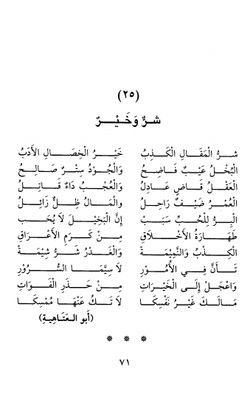 (٢٥)
شَرٌّ وَخَيْرٌ
شَرُّ الْمَقَالِ الْكَذِبُ خَيْرُ الْخِصَالِ الْأَدَبُ
الْبُخْلُ عَيْبٌ فَاضِحُ وَالْجُودُ سِتْرٌ صَالِحُ
الْعَقْلُ قَاضٍ عَادِلُ وَالْعُجْبُ دَاءٌ قَاتِلُ
الْعُمْرُ ضَيْفٌ رَاحِلُ وَالْمَالُ ظِلٌّ زَائِلُ
الْبِرُّ لِلْحُبِّ سَبَبْ إِنَّ الْبَخِيلَ لَا يُحَبّ
طَهَارَةُ الْأَخْلَاقِ مِنْ كَرَمِ الْأَعْرَاقِ
الْكِذْبُ وَالنَّمِيْمَةْ وَالْغَدْرُ شَرُّ شِيْمَةْ
تَأَنَّ فِي الْأُمُوْرِ لَا سِيَّمَا الشُّرُوْرِ
وَاعْجَلْ إِلَى الْخَيْرَاتِ مِنْ حَذَرِ الْفَوَاتِ
مَالَكَ غَيْرُ نَفْسِكَا لَا تَكُ عَنْهَا مُمْسِكَا
(أبو العتاهية)
* * *
٧١